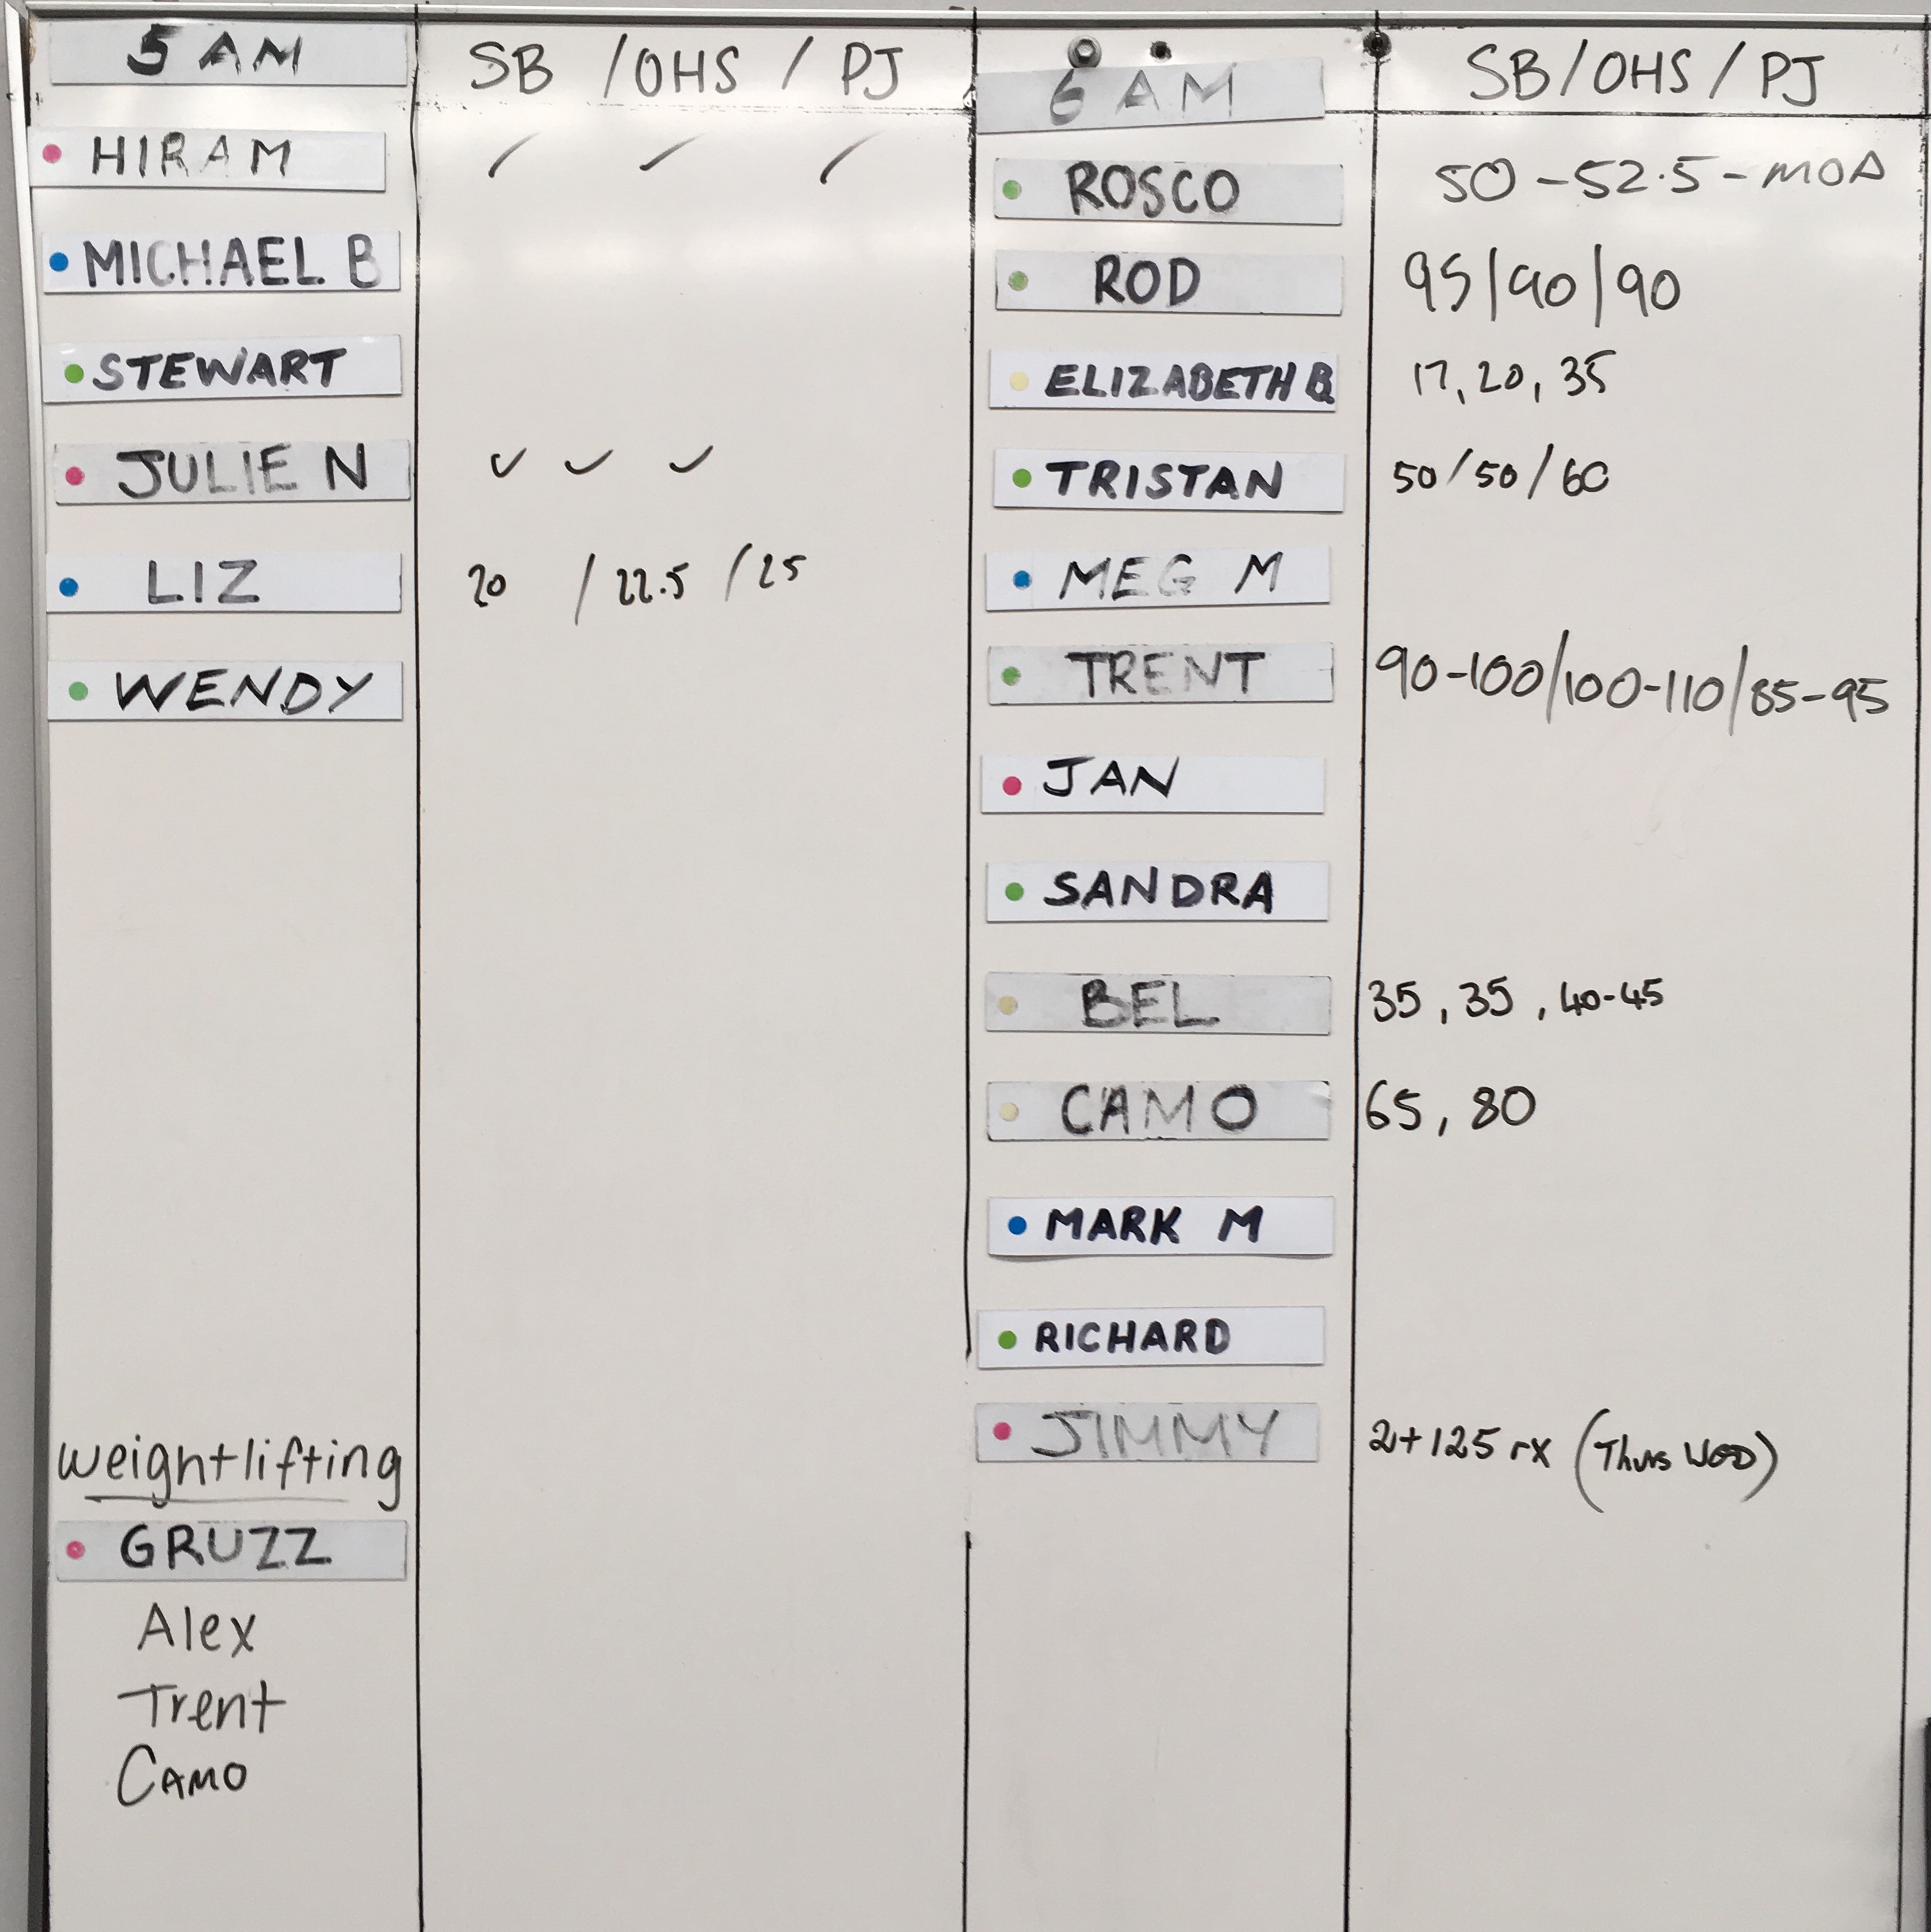 5 AM
SB / OHS / PJ
HIRAM
MICHAEL B
STEWART
JULIE N
LIZ 20 / 22.5 / 25
WENDY
weightlifting
GRUZZ
Alex
Trent
CAMO
6 AM
SB / OHS / PJ
ROSCO 50 - 52.5 - MOD
ROD 95 / 90 / 90
ELIZABETH B 17, 20, 35
TRISTAN 50 / 50 / 60
MEG M
TRENT 90-100 / 100-110 / 85-95
JAN
SANDRA
BEL 35, 35, 40-45
CAMO 65, 80
MARK M
RICHARD
JIMMY 2+125 rx (Thurs WOD)